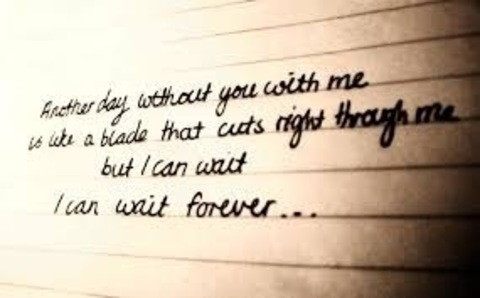 Another day without you with me
is like a blade that cuts right through me
but I can wait
I can wait forever...